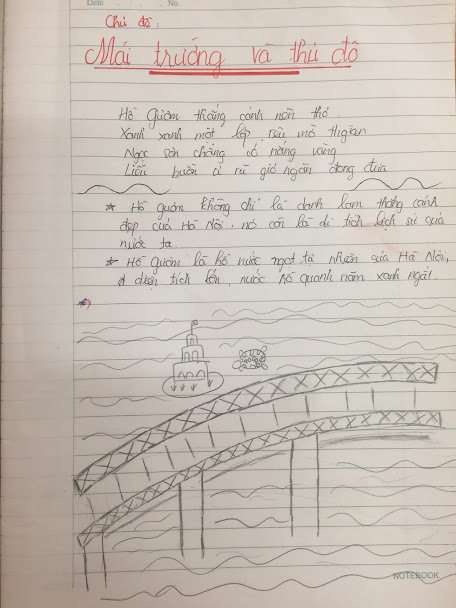 Date No.
Chủ đề:
Mái trường và thủ đô
Hồ Gươm thắng cảnh nên thơ
Xanh xanh một lớp rêu mờ thgian
Ngọc sơn chẳng có nắng vàng
Liễu buồn ủ rũ gió ngàn đong đưa
* Hồ gươm không chỉ là danh lam thắng cảnh
đẹp của Hà Nội, nó còn là di tích lịch sử của
nước ta
* Hồ gươm là hồ nước ngọt tự nhiên của Hà Nội,
diện tích lớn, nước hồ quanh năm xanh ngắt.
NOTEBOOK